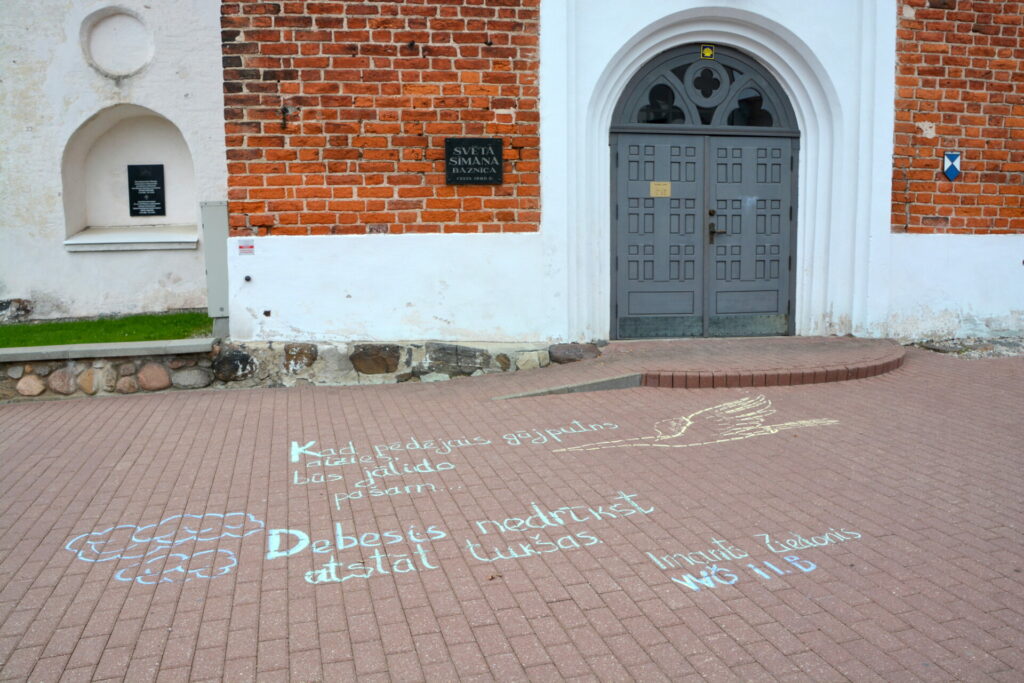 SVĒTĀ
SĪMAŅA
BAZNĪCA
Kad pēdējais gājputns
aizies,
būs jālido
pašam...
Debesis nedrīkst
atstāt tukšas.
Imants Ziedonis
VVĢ 11.B